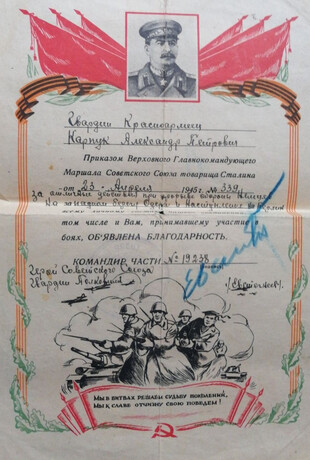 Гвардии Красноармеец
Карпук Александр Петрович
Приказом Верховного Главнокомандующего
Маршала Советского Союза товарища Сталина
от 23 Апреля 1945 г. № 339
за отличные действия при прорыве обороны немцев
на западном берегу
том числе и Вам, принимавшему участие в
боях, ОБ'ЯВЛЕНА БЛАГОДАРНОСТЬ.
КОМАНДИР ЧАСТИ № 19238
Герой Советского Союза
Гвардии Полковник
МЫ В БИТВАХ РЕШАЕМ СУДЬБУ ПОКОЛЕНИЙ,
МЫ К СЛАВЕ ОТЧИЗНУ СВОЮ ПОВЕДЕМ!